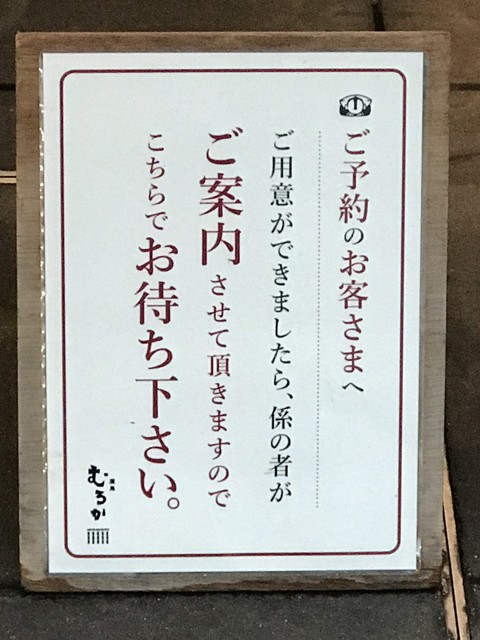 ご予約のお客さまへ
ご用意ができましたら、係の者が
ご案内させて頂きますので
こちらでお待ち下さい。
むろか